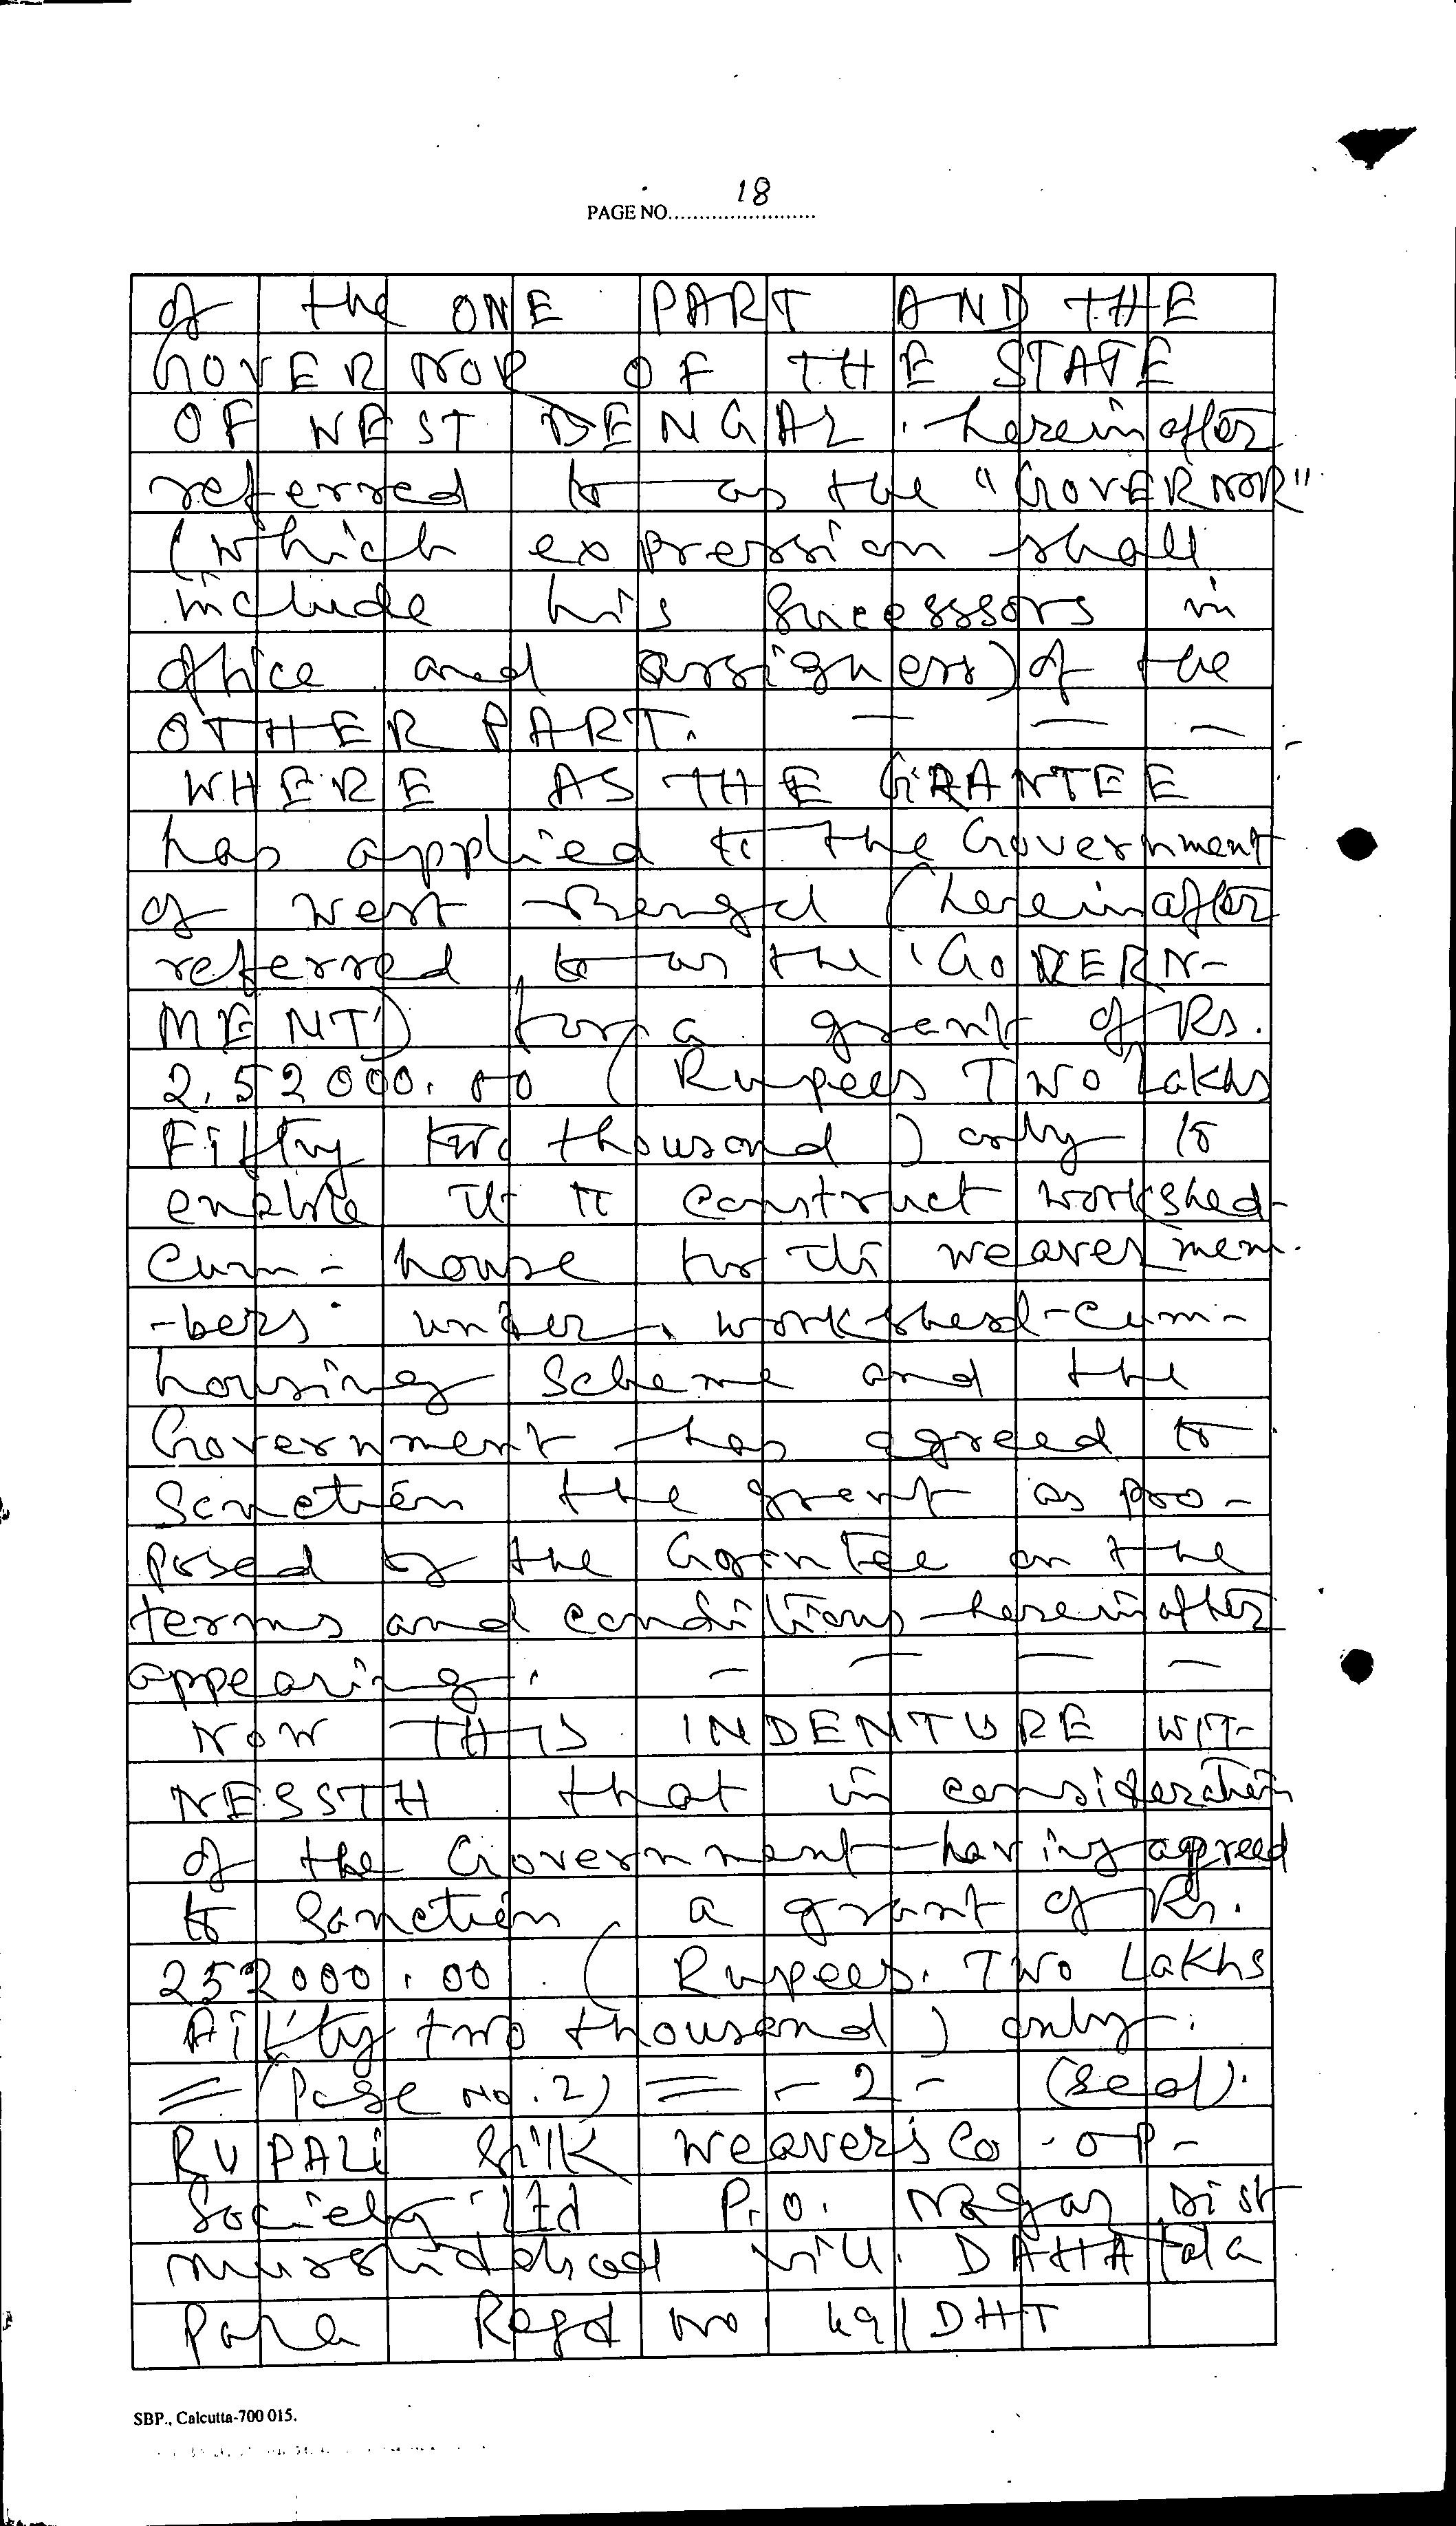 18
PAGE NO........................
of the ONE PART AND THE
GOVERNOR OF THE STATE
OF WEST BENGAL hereinafter
referred to as the "GOVERNOR"
(which expression shall
include his Sucesssors in
office and assigness) of the
OTHER PART. — — —
WHERE AS THE GRANTEE
has applied to the Government
of West Bengal (hereinafter
referred to as the 'GOVERN-
MENT') for a grant of Rs.
2,52000.00 (Rupees Two Lakhs
Fifty two thousand) only to
enable it to construct workshed-
cum-house for its weaver mem-
-bers under workshed-cum-
housing Scheme and the
Government has agreed to
Sanction the grant as pro-
posed by the Grantee on the
terms and conditions hereinafter
appearing. — — — —
NOW THIS INDENTURE WIT-
NESSTH that in consideration
of the Government having agreed
to Sanction a grant of Rs.
252000.00 (Rupees Two Lakhs
Fifty two thousand) only.
= (Page No. 2) = - 2 - (Seal).
RUPALI Silk Weaver's Co-op-
Society Ltd P.O. Nagar Dist
Murshidabad Vill. DAHA
Para Regd No 49/DHT
SBP., Calcutta-700 015.